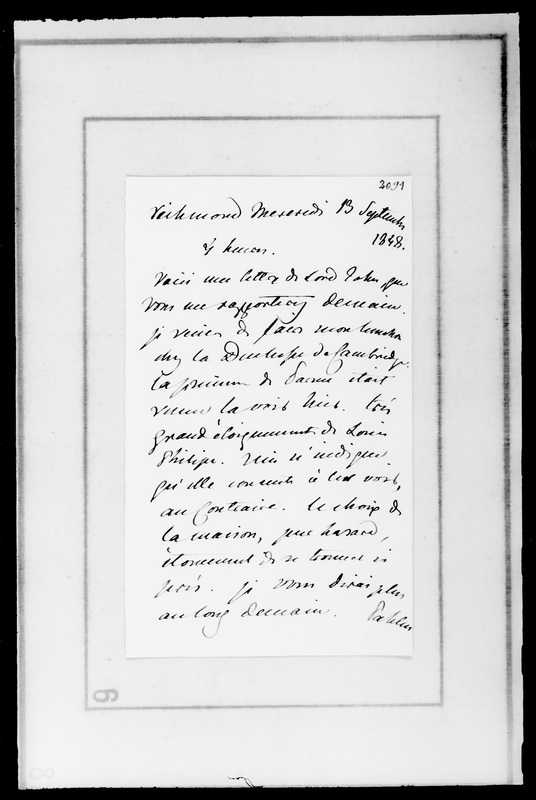 3091
Richmond Mercredi 13 Septembre
1848.
4 heures.
Voici une lettre de Lord John, que
vous me rapporterez demain.
je viens de faire mon luncheon
chez la Duchesse de Cambridge.
la princesse de Parme était
venue la voir hier. très
grand éloignement de Louis
Philippe. rien n'indique
qu'elle consente à les voir,
au contraire. le choix de
la maison, pur hasard,
étonnement de se trouver si
près. je vous dirai plus
au long demain. Pahlen
6
8